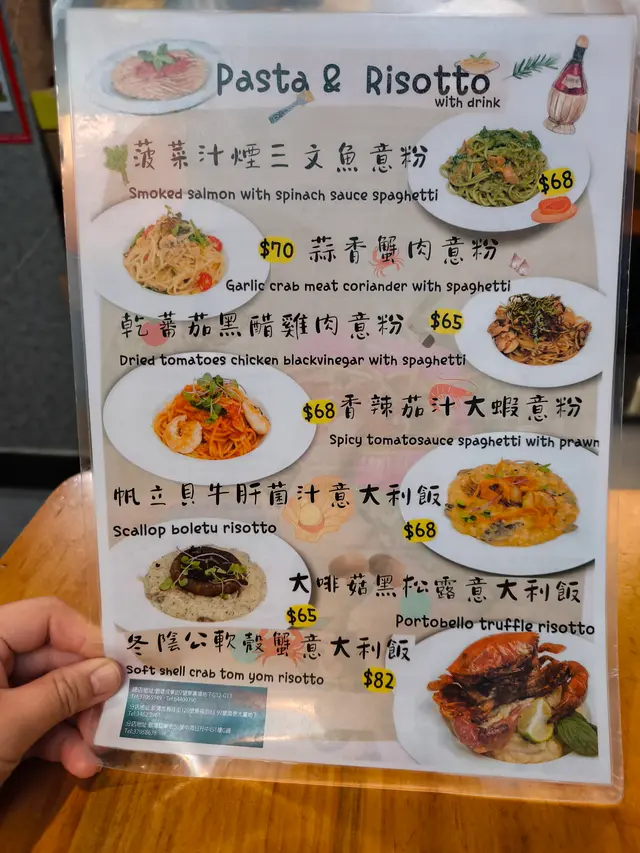 Pasta & Risotto
with drink
菠菜汁煙三文魚意粉
$68
Smoked salmon with spinach sauce spaghetti
$70 蒜香蟹肉意粉
Garlic crab meat coriander with spaghetti
乾蕃茄黑醋雞肉意粉 $65
Dried tomatoes chicken blackvinegar with spaghetti
$68 香辣茄汁大蝦意粉
Spicy tomatosauce spaghetti with prawn
帆立貝牛肝菌汁意大利飯
Scallop boletu risotto
$68
大啡菇黑松露意大利飯
$65
Portobello truffle risotto
冬陰公軟殼蟹意大利飯
Soft shell crab tom yom risotto
$82